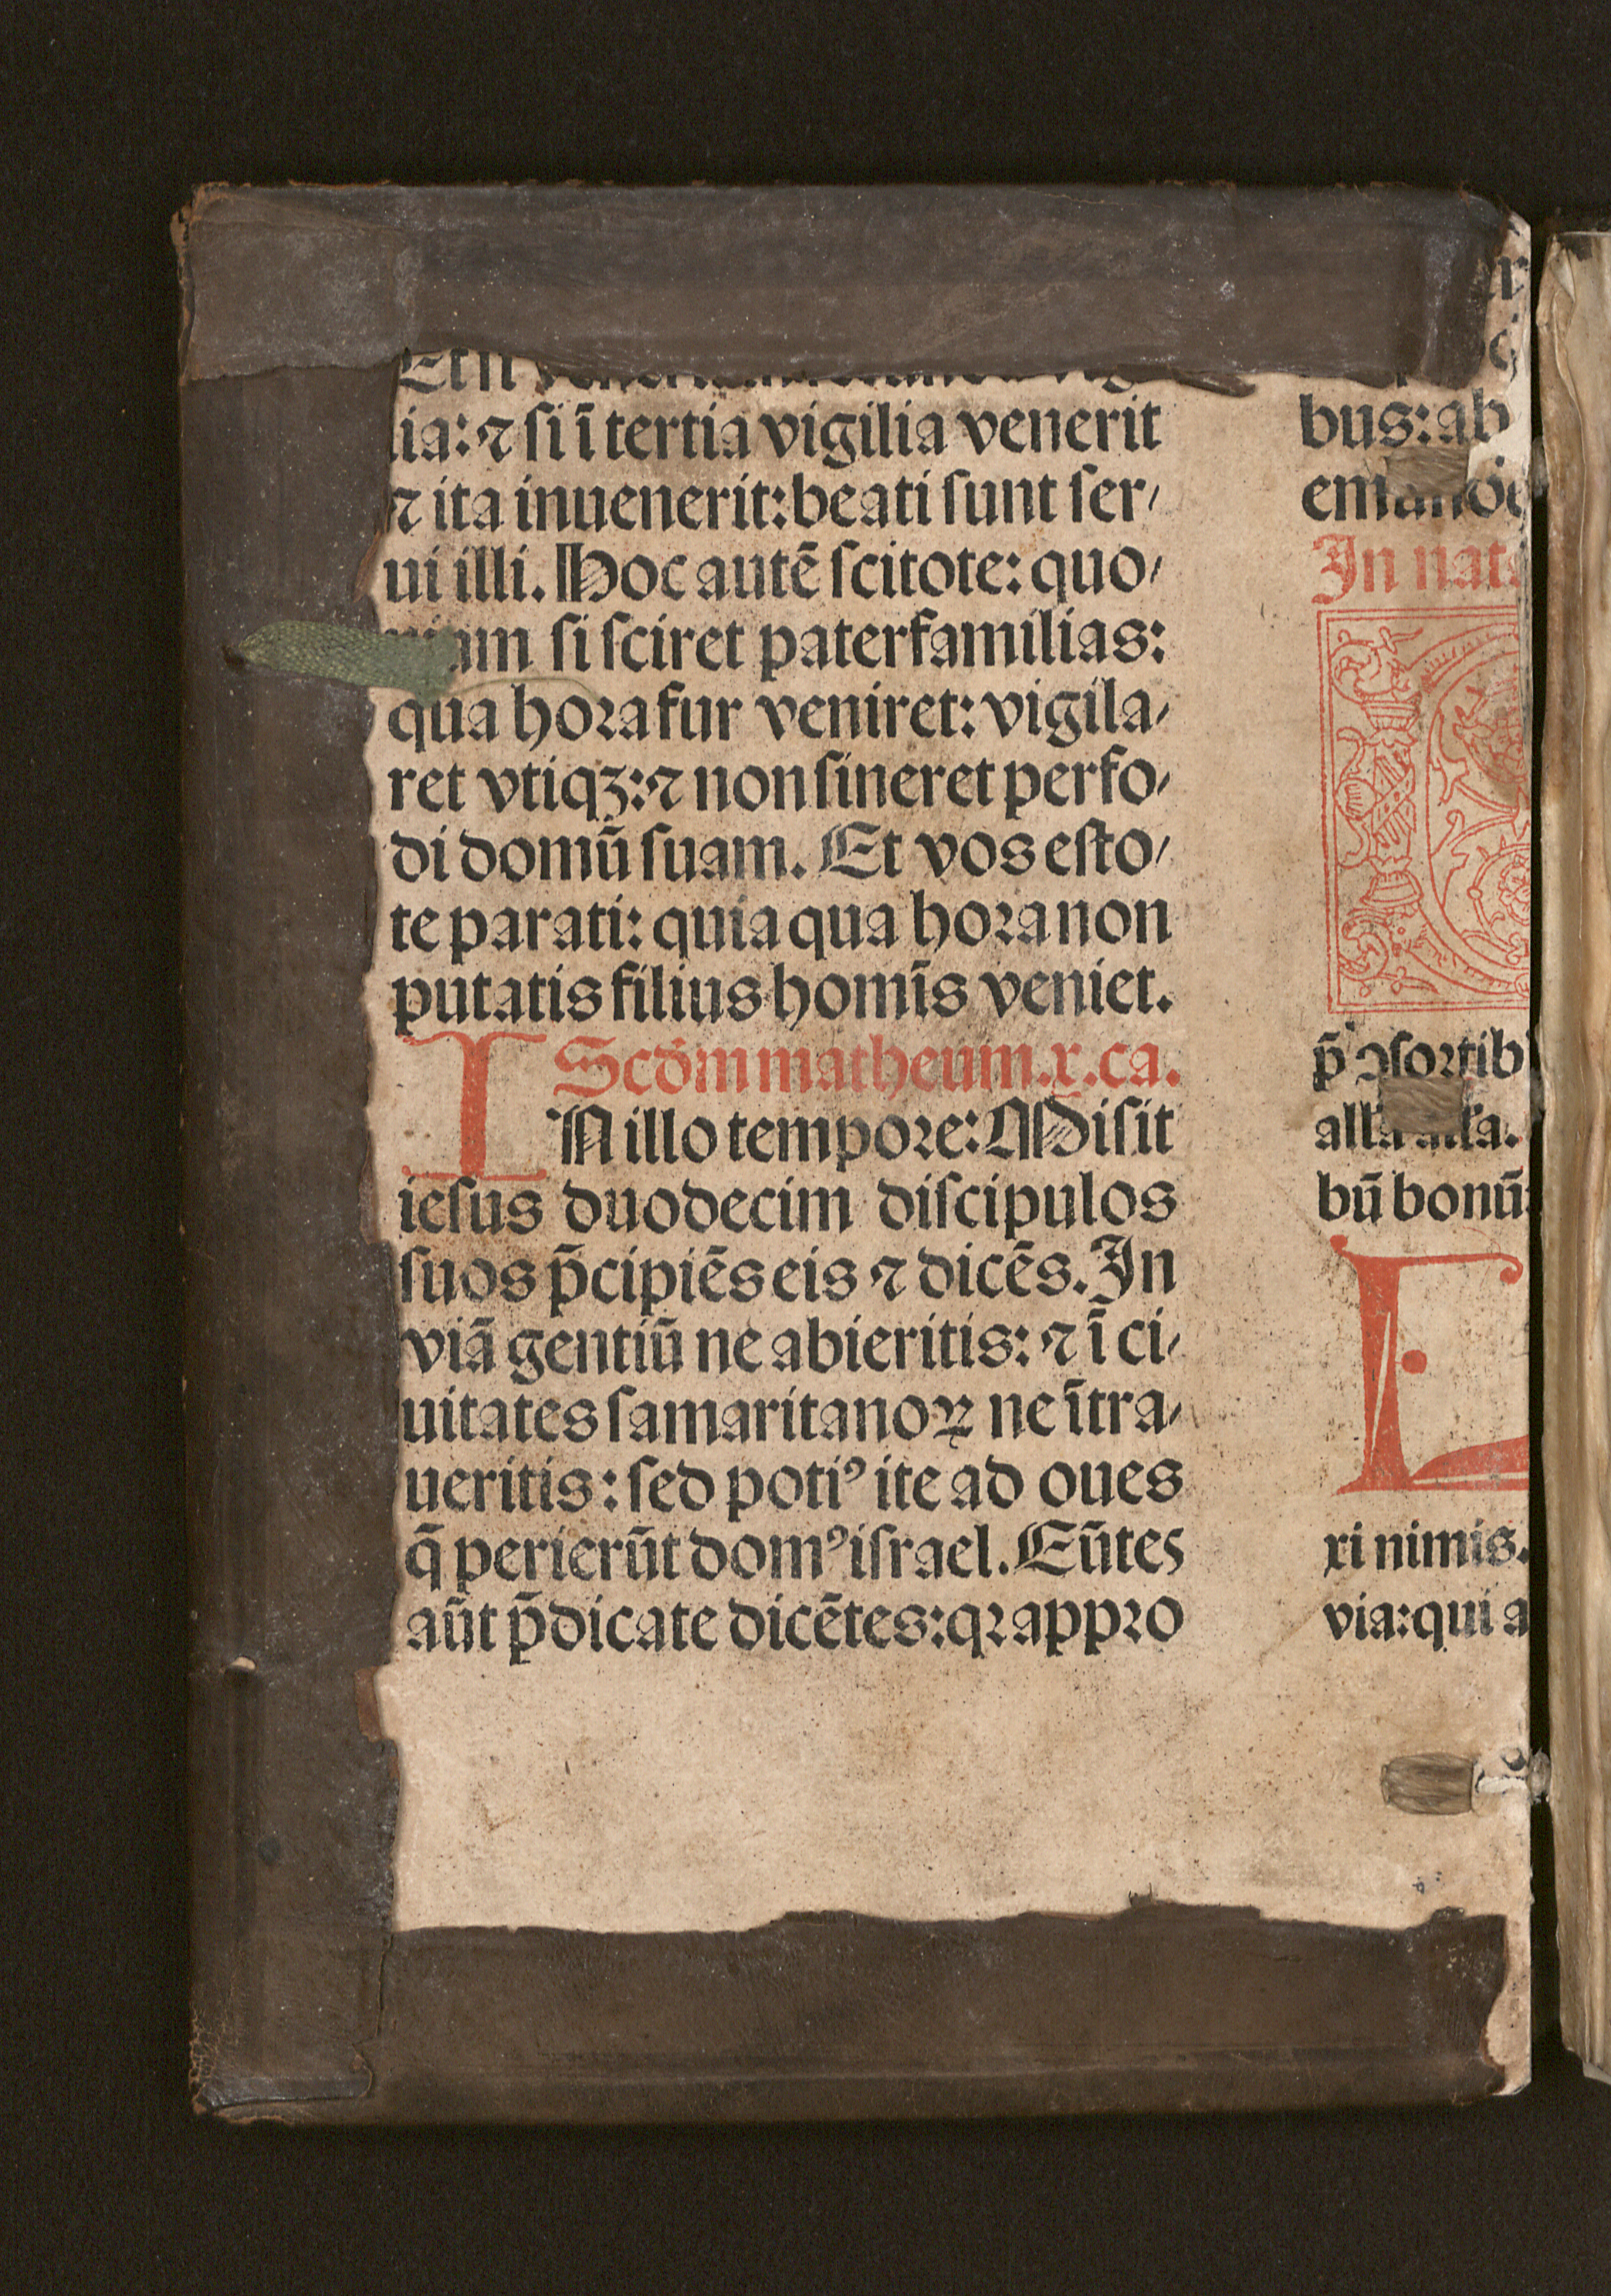 Et si
lia: ⁊ ſi ī tertia vigilia venerit
⁊ ita inuenerit: beati ſunt ſer⸗
ui illi. Hoc autē ſcitote: quo⸗
ſi ſciret paterfamilias:
qua hoꝛa fur veniret: vigila⸗
ret vtiqꝫ: ⁊ non ſineret perfo⸗
di domū ſuam. Et vos eſto⸗
te parati: quia qua hoꝛa non
putatis filius homīs veniet.
Scdm matheum .x. ca.
IN illo tempoꝛe: Miſit
ieſus duodecim diſcipulos
ſuos p̄cipiēs eis ⁊ dicēs. In
viā gentiū ne abieritis: ⁊ ī ci⸗
uitates ſamaritanoꝝ ne ītra⸗
ueritis: ſed potiꝰ ite ad oues
q̄ perierūt domꝰ iſrael. Eūtes
aūt p̄dicate dicētes: qꝛ appꝛo
bus: ab
In nat
p̄ ꝯſoꝛtib
bū bonū:
L
xi nimis.
via: qui a